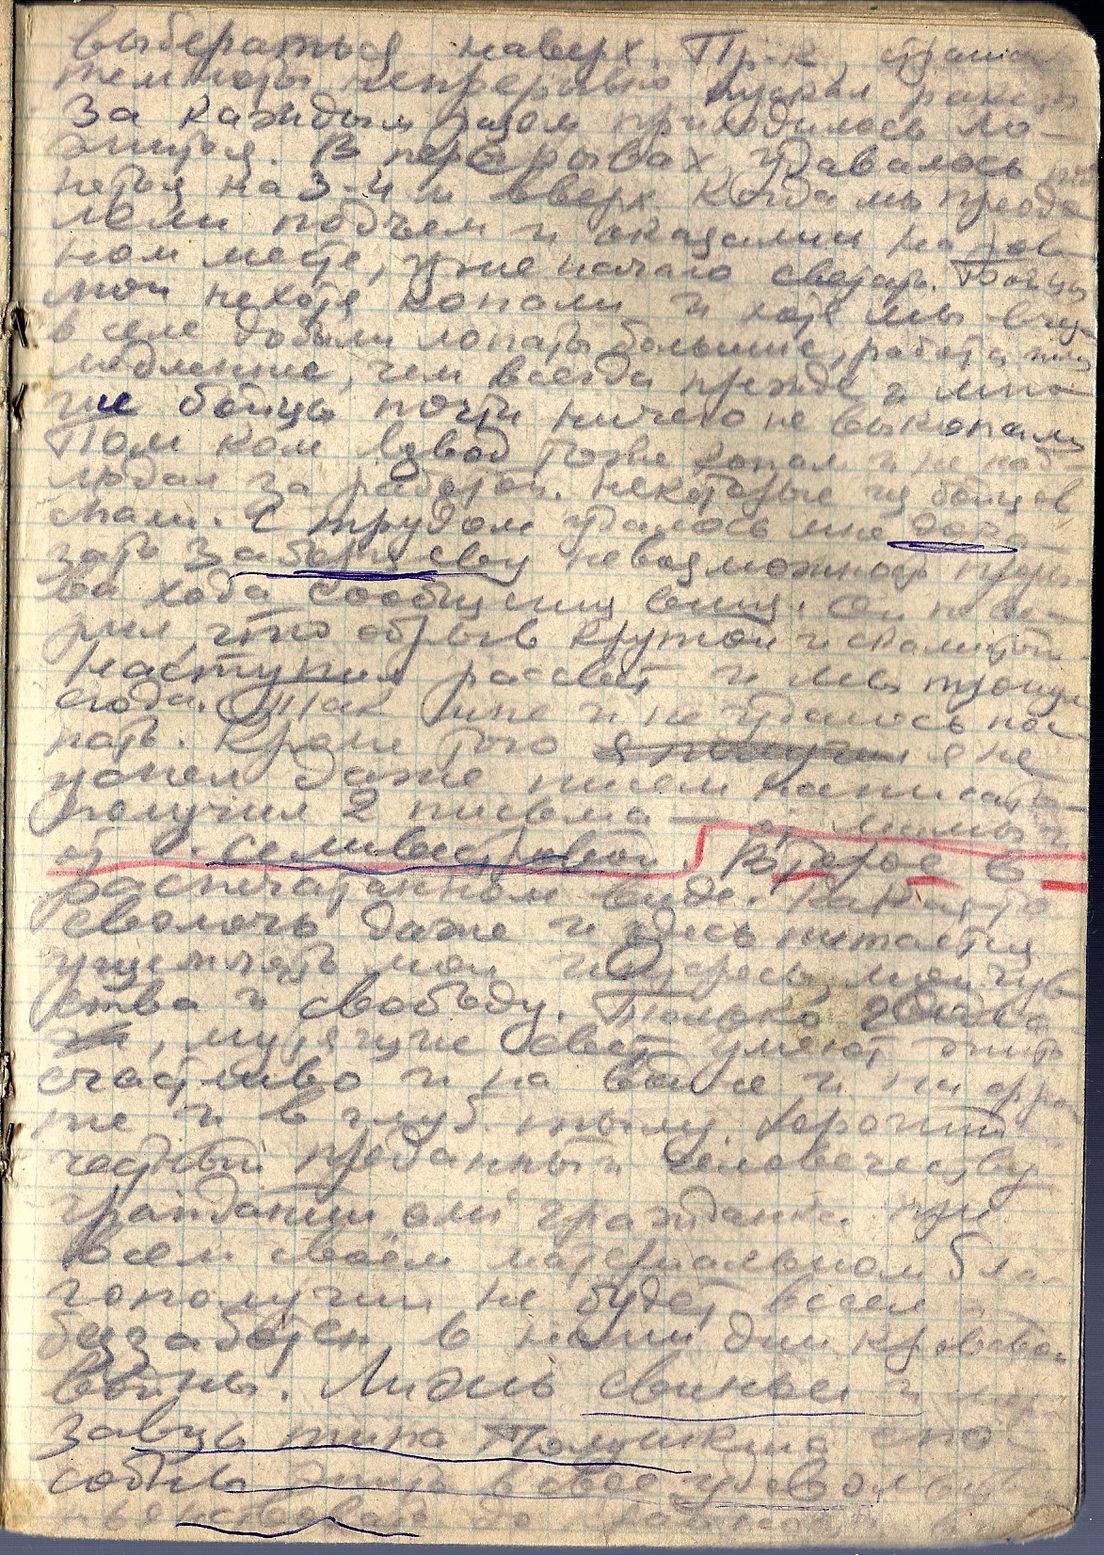 выбераться наверх. Пр-к
непрерывно пускал ракеты
За каждым разом приходилось ло-
житься. В перерывах удавалось под
няться на 3-4 м вверх. Когда мы преодо
лели подъем и оказались на ров
ном месте, уже начало светать. Бойцы
мои нехотя копали и хотя мы вчера
в селе добыли лопаты большие, работа шла
медленнее, чем всегда прежде и мно
гие бойцы почти ничего не выкопали
Пом ком взвод тоже копал и не наб-
людал за работой. Некоторые из бойцов
спали. С трудом удалось мне дока-
зать невозможность
хода сообщения вниз. Он пове-
рил, что обрыв крутой и скалистый
Наступил рассвет и мы
сюда. Так мне и не удалось пос
пать. Кроме того я не
успел даже писем написать
получил 2 письма — от мамы и
от Селивестровой. Второе в
распечатанном виде. Какая-то
сволочь даже и здесь пытается
ущемлять мои интересы, мои чув
ства и свободу. Только
умеют жить
счастливо и на войне и на фрон
те и в глуб. тылу. Хороший
честный преданный человечеству
гражданин или гражданка при
всем своём материальном бла-
гополучии не будет весел и
беззаботен в наши дни кровавой
войны. Лишь свиньи и мер
завцы типа Полушкина спо-
собны жить в свое удовольствие